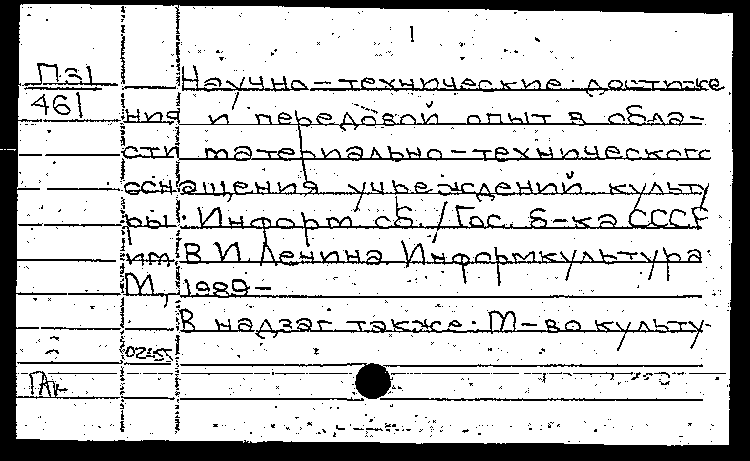 1
П31 Научно-технические достиже
461 ния и передовой опыт в обла-
сти материально-технического
оснащения учреждений культу
ры: Информ. сб. / Гос. б-ка СССР
им. В.И. Ленина Информкультура.
М., 1989-
В надзаг также: М-во культу-